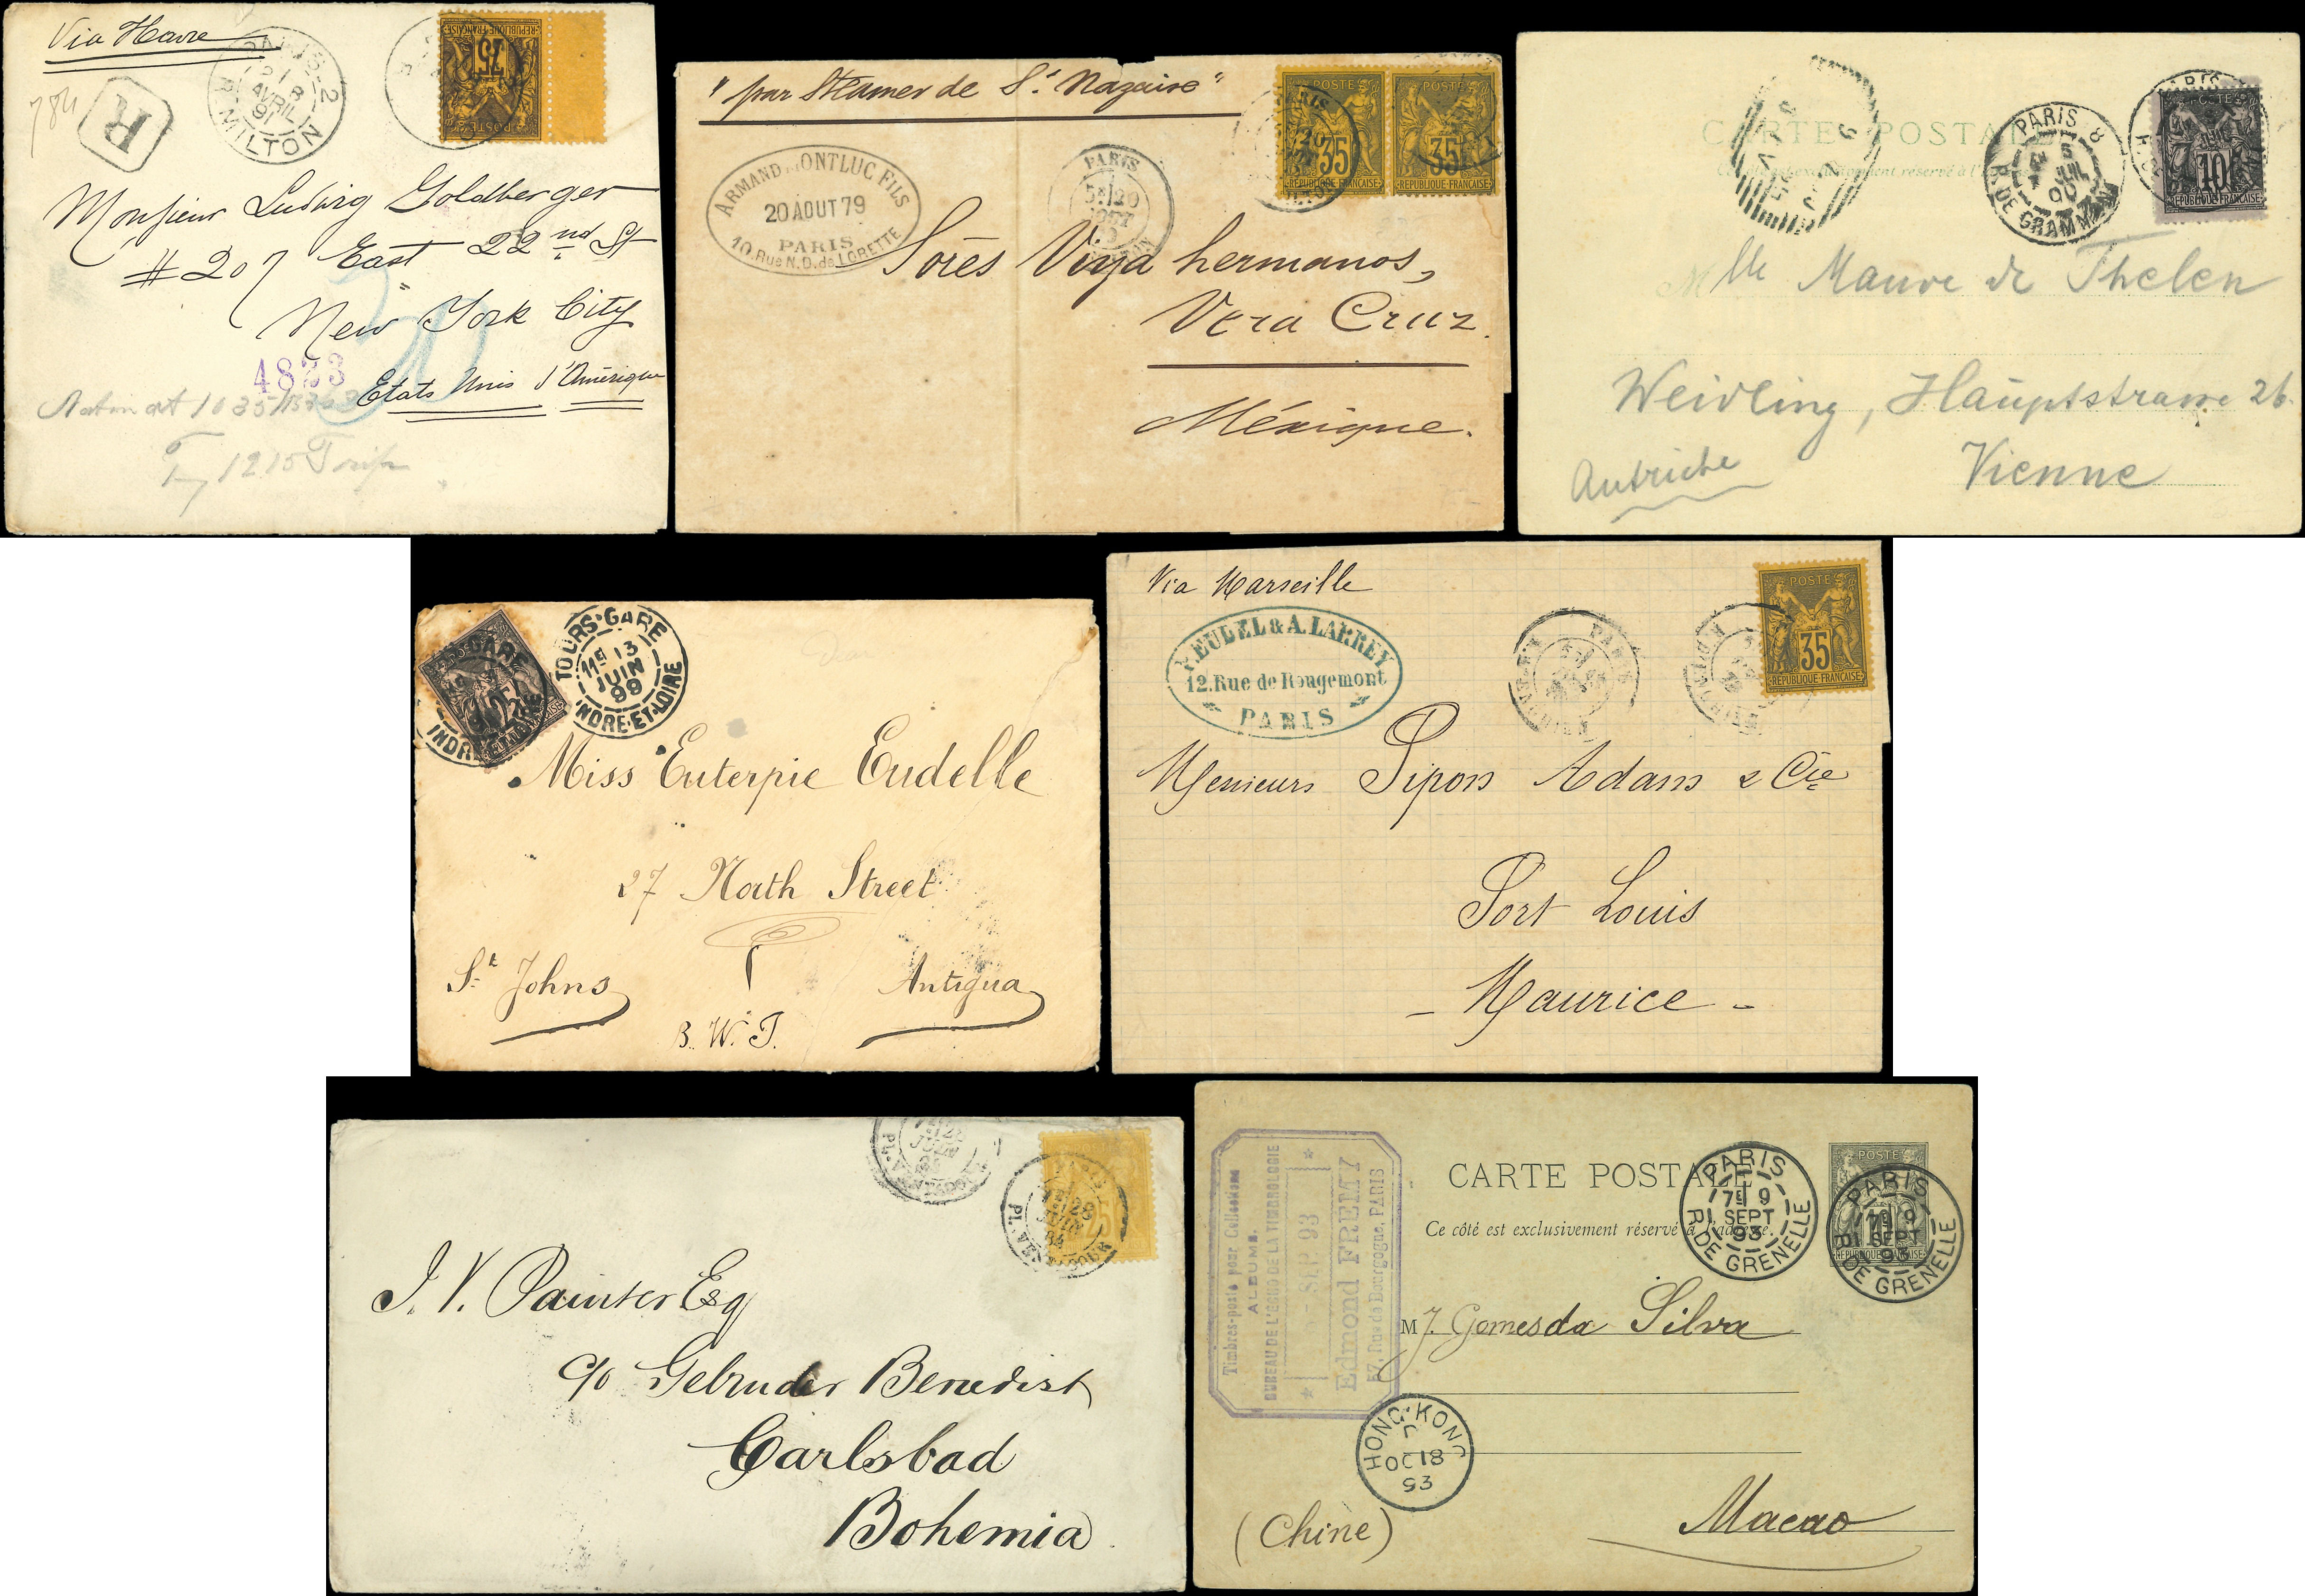 Via Havre
R
784
PARIS-2
21 8
AVRIL
91
R. MILTON
POSTE
75
REPUBLIQUE FRANÇAISE
Monsieur Ludwig Goldberger
# 207 East 22nd St
New York City
4823
Etats Unis d'Amérique
" par Steamer de St. Nazaire "
ARMAND MONTLUC FILS
20 AOUT 79
PARIS
10. Rue N.D. de LORETTE
PARIS
5E/20
POSTE
35
REPUBLIQUE FRANÇAISE
POSTE
35
REPUBLIQUE FRANÇAISE
Sores Viya hermanos,
Vera Cruz.
Méxique.
CARTE POSTALE
PARIS 8
5
JUIL
00
R. DE GRAMMONT
POSTE
10
REPUBLIQUE FRANÇAISE
Mlle Mauve de Thelen
Weidling, Hauptstrasse 26.
Autriche
Vienne
TOURS-GARE
11E 13
JUIN
99
INDRE-ET-LOIRE
Miss Euterpie Eudelle
27 North Street
St Johns
Antigua
B. W. I.
Via Marseille
P. EUDEL & A. LARREY
12. Rue de Rougemont
PARIS
PARIS
POSTE
35
REPUBLIQUE FRANÇAISE
Messieurs Pipon Adam & Cie
Port Louis
- Maurice -
PL. VENDOME
28
JUIN
84
25
J. V. Painter Esq
c/o Gebruder Benedist
Carlsbad
Bohemia
Timbres-poste pour Collections
ALBUMS.
BUREAU DE L'ECHO DE LA TIMBROLOGIE
* - SEP 93 *
Edmond FREMY
57, Rue de Bourgogne, PARIS
CARTE POSTALE
Ce côté est exclusivement réservé à l'adresse.
PARIS
7E 9
1 SEPT
93
R. DE GRENELLE
POSTE
10
REPUBLIQUE FRANÇAISE
PARIS
7E 9
1 SEPT
93
R. DE GRENELLE
M J. Gomes da Silva
HONG KONG
OC 18
93
(Chine)
Macao